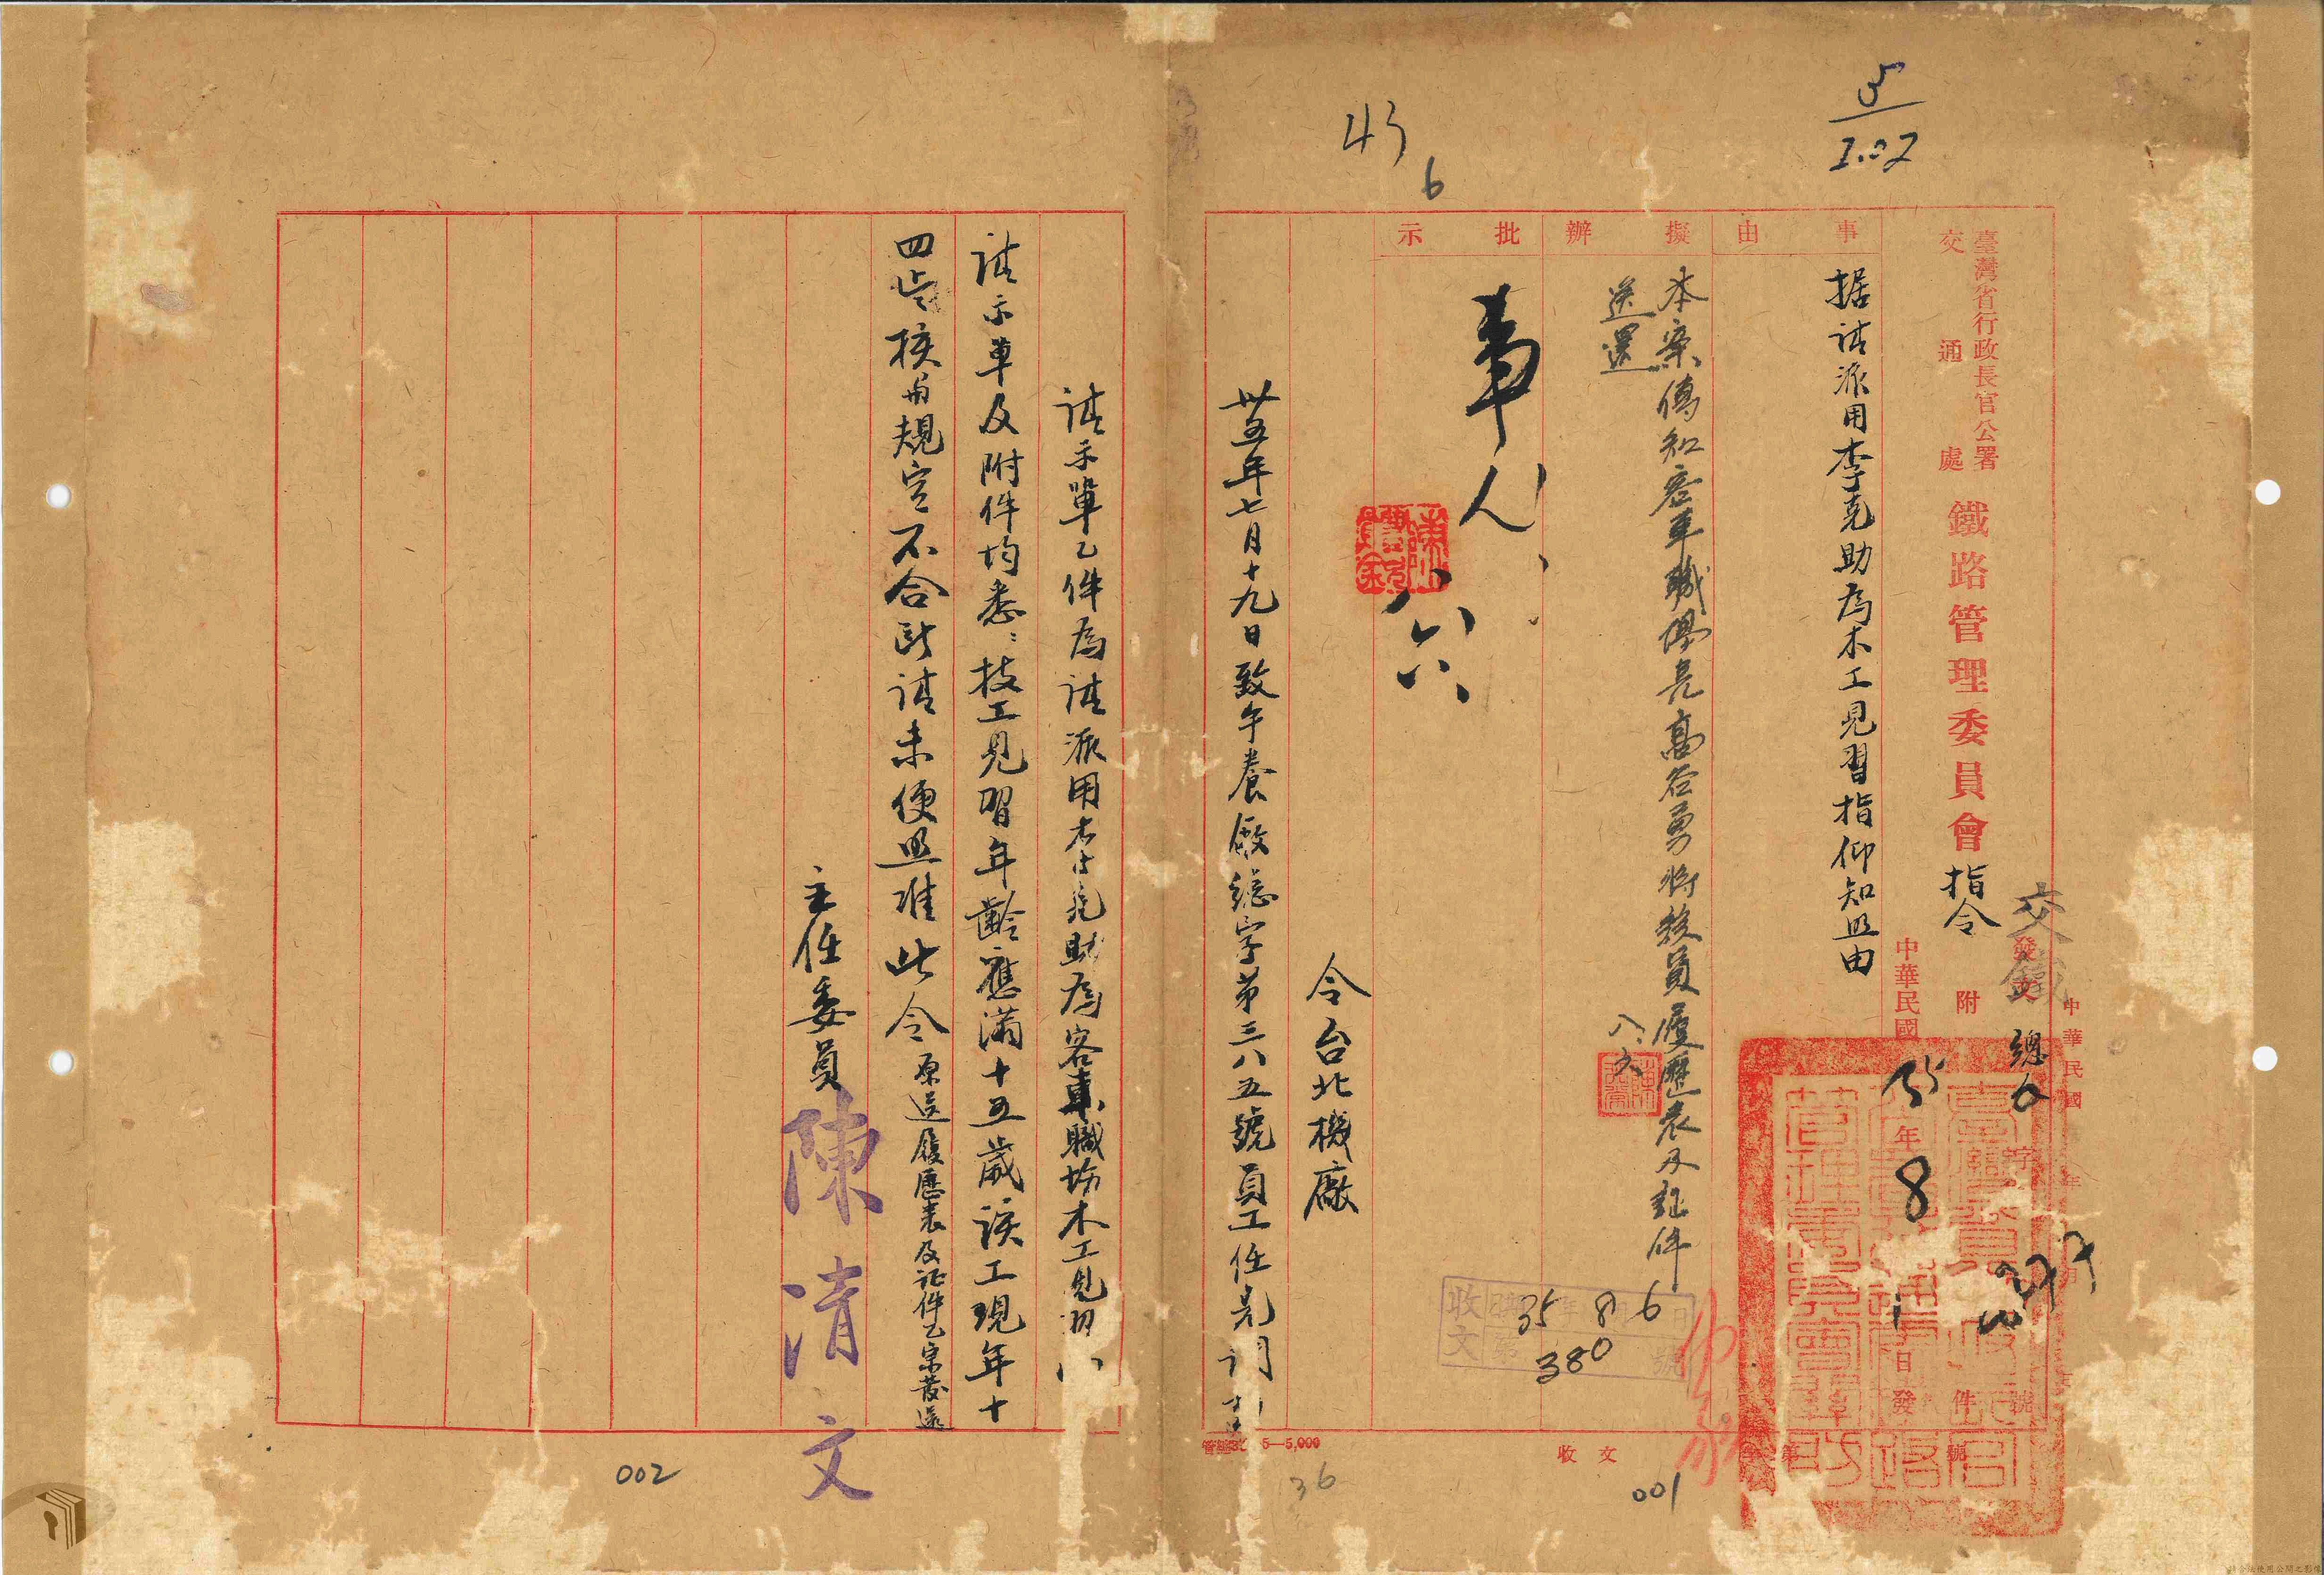 5
2.02
43
6
臺灣省行政長官公署
交通處
鐵路管理委員會 指令
交鐵
發文 總人 字 號
附 件
中華民國 年 月 日
中華民國 35 年 8 月 1 日發
事由
据請派用李克助為木工見習指仰知照由
擬辦
本案傳知客車職場長高谷勇將該員履歷表及証件
送還
八六
批示
事人
八六
收文 35 年 8 月 6 日
第 380 號
令台北機廠
卅五年七月十九日致午養廠總字第三八五號員工任免調
收文 第 號
5—5,000
36
001
請示單乙件為請派用李克助為客車職場木工見習
請示單及附件均悉技工見習年齡應滿十五歲該工現年十
四歲核與規定不合所請未便照准此令原送履歷表及証件乙宗發還
主任委員 陳清文
002